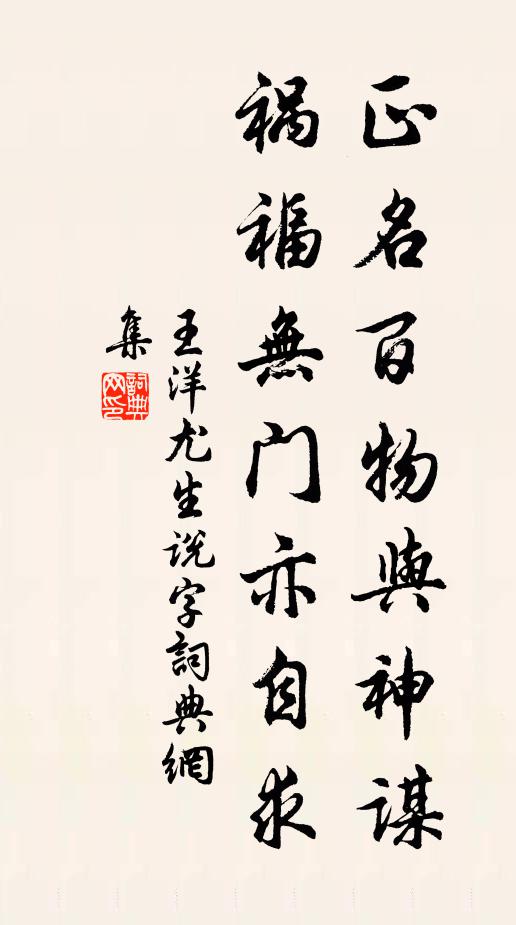 正名百物與神謀
禍福無門亦自求
王洋尤生说字詞典網
集
詞典
网印